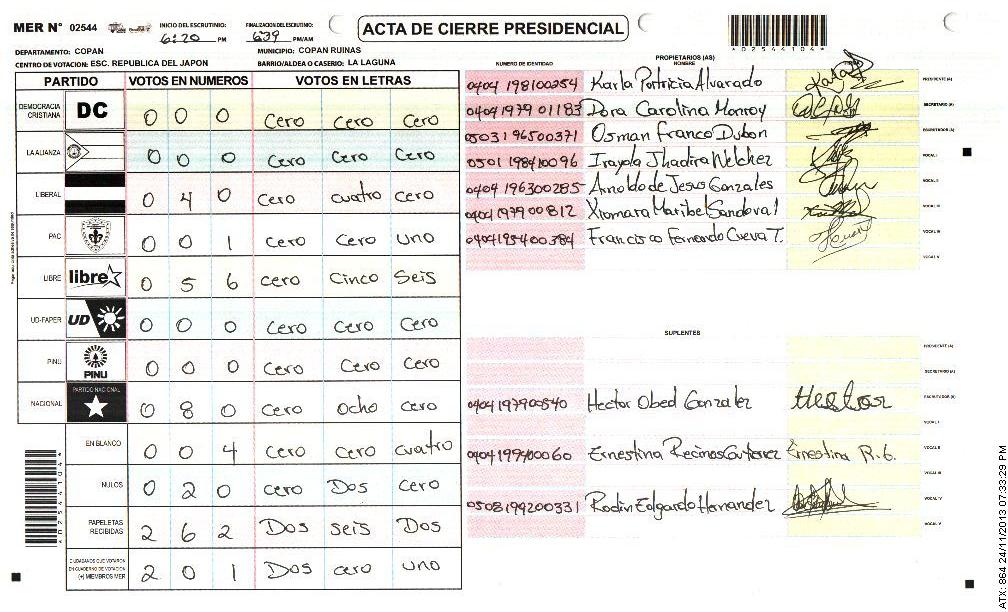 MER N° 02544 INICIO DEL ESCRUTINIO: 6:20 PM FINALIZACION DEL ESCRUTINIO: 6:39 PM/AM ACTA DE CIERRE PRESIDENCIAL *02544104*
DEPARTAMENTO: COPAN MUNICIPIO: COPAN RUINAS
CENTRO DE VOTACION: ESC. REPUBLICA DEL JAPON BARRIO/ALDEA O CASERIO: LA LAGUNA
PARTIDO VOTOS EN NUMEROS VOTOS EN LETRAS
DEMOCRACIA CRISTIANA DC 0 0 0 Cero Cero Cero
LA ALIANZA 0 0 0 Cero Cero Cero
LIBERAL 0 4 0 Cero cuatro Cero
PAC 0 0 1 Cero Cero uno
LIBRE libre 0 5 6 Cero Cinco Seis
UD-FAPER UD 0 0 0 Cero Cero Cero
PINU PINU 0 0 0 Cero Cero Cero
NACIONAL PARTIDO NACIONAL 0 8 0 Cero ocho cero
EN BLANCO 0 0 4 Cero Cero cuatro
NULOS 0 2 0 Cero Dos Cero
PAPELETAS RECIBIDAS 2 6 2 Dos seis Dos
CIUDADANOS QUE VOTARON EN CUADERNO DE VOTACION (+) MIEMBROS MER 2 0 1 Dos cero uno
*02544104*
PROPIETARIOS (AS)
NUMERO DE IDENTIDAD NOMBRE
0404 198100254 Karla Patricia Alvarado PRESIDENTE (A)
0404 1979 01183 Dora Carolina Monroy SECRETARIO (A)
0503 196500371 Osman Franco Dubon ESCRUTADOR (A)
0501 198410096 Irayola Jhadira Welchez VOCAL I
0404 196300285 Arnoldo de Jesus Gonzales VOCAL II
0404 197900812 Xiomara Maribel Sandoval VOCAL III
0404195400384 Francisco Fernando Cueva T. VOCAL IV
VOCAL V
SUPLENTES
PRESIDENTE (A)
SECRETARIO (A)
0404197900840 Hector Obed Gonzalez Hector ESCRUTADOR (A)
VOCAL I
0404199400060 Ernestina Recinos Gutierrez Ernestina R. G. VOCAL II
VOCAL III
0508199200331 Rodin Edgardo Hernandez VOCAL IV
VOCAL V
ATX: 864 24/11/2013 07:33:29 PM